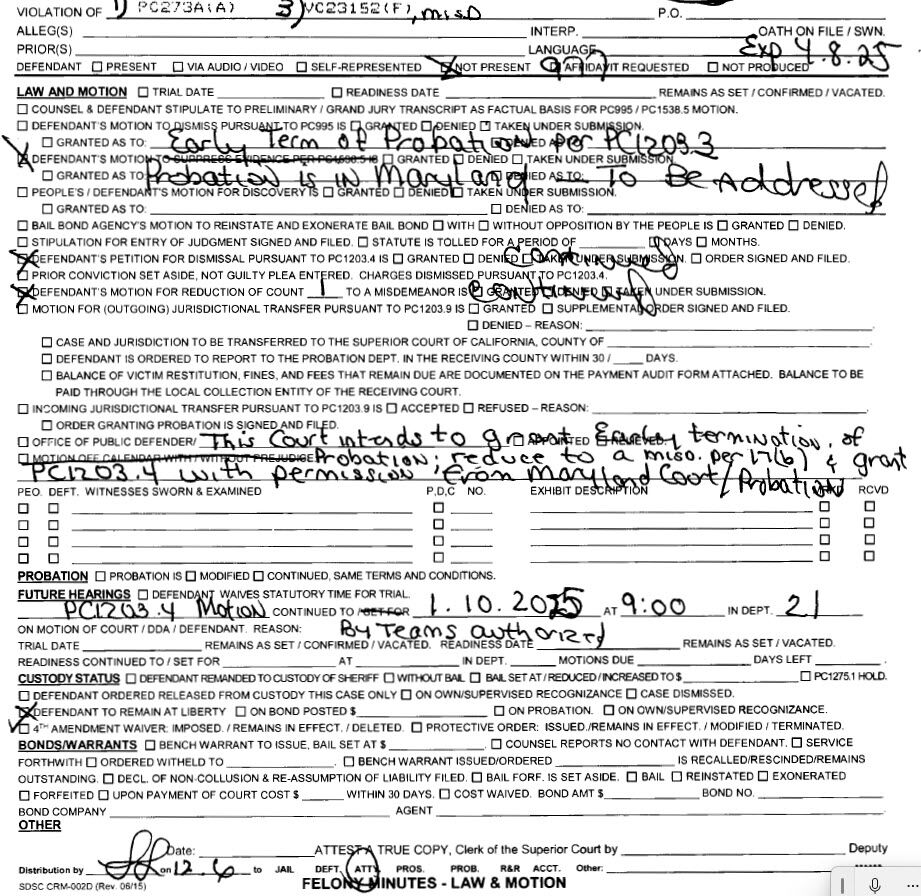 VIOLATION OF 1) PC273A(A) 3) VC23152(F), misd P.O.
ALLEG(S) INTERP. OATH ON FILE / SWN.
PRIOR(S) LANGUAGE Exp 4.8.25
DEFENDANT ☐ PRESENT ☐ VIA AUDIO / VIDEO ☐ SELF-REPRESENTED ☒ NOT PRESENT 977 ☐ AFFIDAVIT REQUESTED ☐ NOT PRODUCED
LAW AND MOTION ☐ TRIAL DATE ☐ READINESS DATE REMAINS AS SET / CONFIRMED / VACATED.
☐ COUNSEL & DEFENDANT STIPULATE TO PRELIMINARY / GRAND JURY TRANSCRIPT AS FACTUAL BASIS FOR PC995 / PC1538.5 MOTION.
☐ DEFENDANT'S MOTION TO DISMISS PURSUANT TO PC995 IS ☐ GRANTED ☐ DENIED ☐ TAKEN UNDER SUBMISSION.
☐ GRANTED AS TO: Early Term of Probation per PC1203.3 ☐ DENIED AS TO:
☒ DEFENDANT'S MOTION TO SUPPRESS EVIDENCE PER PC1538.5 IS ☐ GRANTED ☐ DENIED ☐ TAKEN UNDER SUBMISSION.
☐ GRANTED AS TO: Probation is in Maryland - To Be Addressed ☐ DENIED AS TO:
☐ PEOPLE'S / DEFENDANT'S MOTION FOR DISCOVERY IS ☐ GRANTED ☐ DENIED ☐ TAKEN UNDER SUBMISSION.
☐ GRANTED AS TO: ☐ DENIED AS TO:
☐ BAIL BOND AGENCY'S MOTION TO REINSTATE AND EXONERATE BAIL BOND ☐ WITH ☐ WITHOUT OPPOSITION BY THE PEOPLE IS ☐ GRANTED ☐ DENIED.
☐ STIPULATION FOR ENTRY OF JUDGMENT SIGNED AND FILED. ☐ STATUTE IS TOLLED FOR A PERIOD OF ☐ DAYS ☐ MONTHS.
☒ DEFENDANT'S PETITION FOR DISMISSAL PURSUANT TO PC1203.4 IS ☐ GRANTED ☐ DENIED ☐ TAKEN UNDER SUBMISSION. continued ☐ ORDER SIGNED AND FILED.
☐ PRIOR CONVICTION SET ASIDE, NOT GUILTY PLEA ENTERED. CHARGES DISMISSED PURSUANT TO PC1203.4.
☒ DEFENDANT'S MOTION FOR REDUCTION OF COUNT 1 TO A MISDEMEANOR IS ☐ GRANTED ☐ DENIED ☐ TAKEN UNDER SUBMISSION. continued
☐ MOTION FOR (OUTGOING) JURISDICTIONAL TRANSFER PURSUANT TO PC1203.9 IS ☐ GRANTED ☐ SUPPLEMENTAL ORDER SIGNED AND FILED.
☐ DENIED – REASON:
☐ CASE AND JURISDICTION TO BE TRANSFERRED TO THE SUPERIOR COURT OF CALIFORNIA, COUNTY OF
☐ DEFENDANT IS ORDERED TO REPORT TO THE PROBATION DEPT. IN THE RECEIVING COUNTY WITHIN 30 / DAYS.
☐ BALANCE OF VICTIM RESTITUTION, FINES, AND FEES THAT REMAIN DUE ARE DOCUMENTED ON THE PAYMENT AUDIT FORM ATTACHED. BALANCE TO BE
PAID THROUGH THE LOCAL COLLECTION ENTITY OF THE RECEIVING COURT.
☐ INCOMING JURISDICTIONAL TRANSFER PURSUANT TO PC1203.9 IS ☐ ACCEPTED ☐ REFUSED – REASON:
☐ ORDER GRANTING PROBATION IS SIGNED AND FILED.
☐ OFFICE OF PUBLIC DEFENDER/ This Court intends to grant Early termination of ☐ APPOINTED ☐ RELIEVED.
☐ MOTION OFF CALENDAR WITH / WITHOUT PREJUDICE Probation; reduce to a misd. per 17(b) & grant
PC1203.4 with permission from Maryland Court/Probation
PEO. DEFT. WITNESSES SWORN & EXAMINED P,D,C NO. EXHIBIT DESCRIPTION ID RCVD
PROBATION ☐ PROBATION IS ☐ MODIFIED ☐ CONTINUED, SAME TERMS AND CONDITIONS.
FUTURE HEARINGS ☐ DEFENDANT WAIVES STATUTORY TIME FOR TRIAL.
PC1203.4 Motion CONTINUED TO / SET FOR 1.10.2025 AT 9:00 IN DEPT. 21
ON MOTION OF COURT / DDA / DEFENDANT. REASON: By Teams authorized
TRIAL DATE REMAINS AS SET / CONFIRMED / VACATED. READINESS DATE REMAINS AS SET / VACATED.
READINESS CONTINUED TO / SET FOR AT IN DEPT. MOTIONS DUE DAYS LEFT
CUSTODY STATUS ☐ DEFENDANT REMANDED TO CUSTODY OF SHERIFF ☐ WITHOUT BAIL ☐ BAIL SET AT / REDUCED / INCREASED TO $ ☐ PC1275.1 HOLD.
☐ DEFENDANT ORDERED RELEASED FROM CUSTODY THIS CASE ONLY ☐ ON OWN/SUPERVISED RECOGNIZANCE ☐ CASE DISMISSED.
☒ DEFENDANT TO REMAIN AT LIBERTY ☐ ON BOND POSTED $ ☐ ON PROBATION. ☐ ON OWN/SUPERVISED RECOGNIZANCE.
☐ 4TH AMENDMENT WAIVER: IMPOSED. / REMAINS IN EFFECT. / DELETED. ☐ PROTECTIVE ORDER: ISSUED./REMAINS IN EFFECT. / MODIFIED / TERMINATED.
BONDS/WARRANTS ☐ BENCH WARRANT TO ISSUE, BAIL SET AT $ ☐ COUNSEL REPORTS NO CONTACT WITH DEFENDANT. ☐ SERVICE
FORTHWITH ☐ ORDERED WITHELD TO ☐ BENCH WARRANT ISSUED/ORDERED IS RECALLED/RESCINDED/REMAINS
OUTSTANDING. ☐ DECL. OF NON-COLLUSION & RE-ASSUMPTION OF LIABILITY FILED. ☐ BAIL FORF. IS SET ASIDE. ☐ BAIL ☐ REINSTATED ☐ EXONERATED
☐ FORFEITED ☐ UPON PAYMENT OF COURT COST $ WITHIN 30 DAYS. ☐ COST WAIVED. BOND AMT $ BOND NO.
BOND COMPANY AGENT
OTHER
Date: ATTEST A TRUE COPY, Clerk of the Superior Court by Deputy
Distribution by on 12.6 to JAIL DEFT. ATTY PROS. PROB. R&R ACCT. Other:
SDSC CRM-002D (Rev. 06/15) FELONY MINUTES - LAW & MOTION